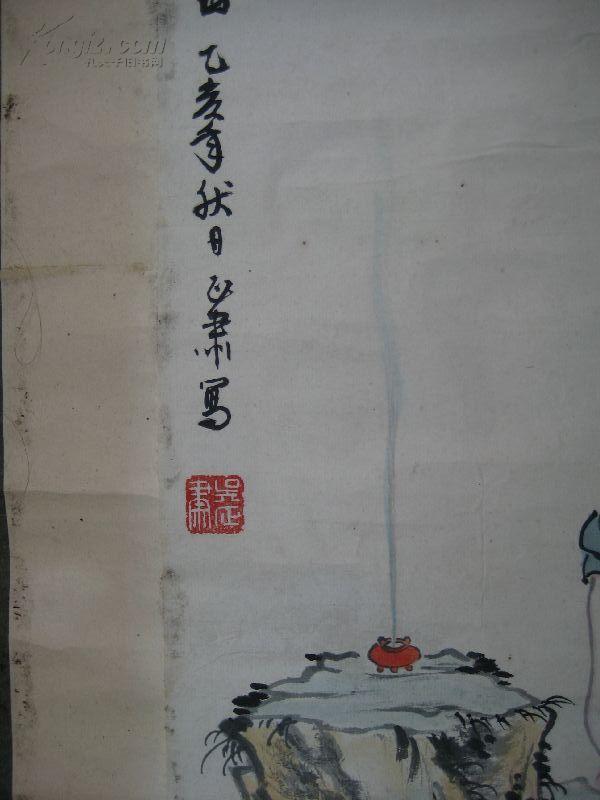 乙亥年秋日正肃寫
吴正肃
Kongfz.com
孔夫子旧书网